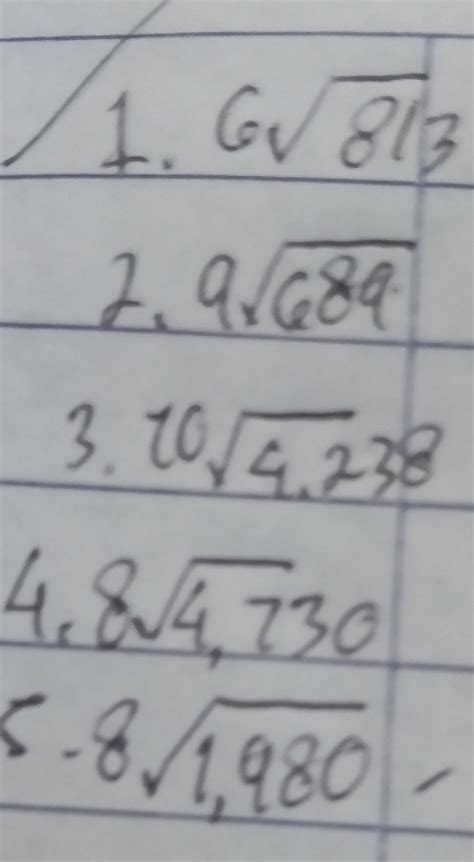 1. 6√813
2. 9√689
3. 70√4,238
4. 8√4,730
5. 8√1,980